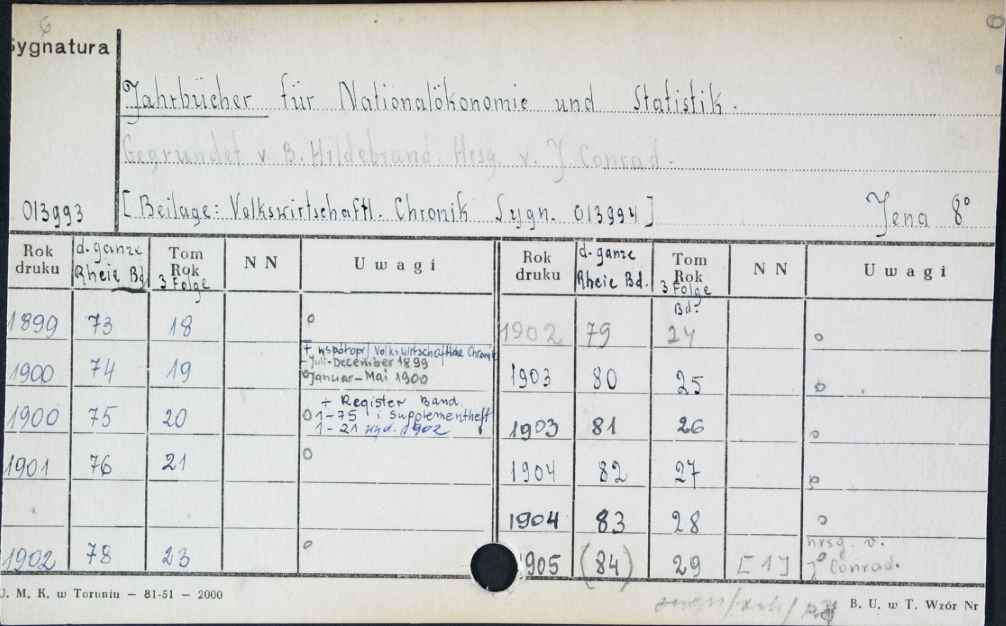 6
Sygnatura
Jahrbücher für Nationalökonomie und Statistik.
Gegründet v. B. Hildebrand. Hrsg. v. J. Conrad.
013993 [Beilage: Volkswirtschaftl. Chronik Sygn. 013994] Jena 8°
Rok druku | d. ganze Rheie Bd. | Tom Rok 3 Folge | NN | Uwagi
1899 | 73 | 18 | | o
1900 | 74 | 19 | | + współopr. Volkswirtschaftliche Chronik
Juli-December 1899
o Januar-Mai 1900
1900 | 75 | 20 | | + Register Band
o 1-75 i Supplementheft
1-21 1902
1901 | 76 | 21 | | o
1902 | 78 | 23 | | o
Rok druku | d. ganze Rheie Bd. | Tom Rok 3 Folge Bd. | NN | Uwagi
1902 | 79 | 24 | | o
1903 | 80 | 25 | | o
1903 | 81 | 26 | | o
1904 | 82 | 27 | | o
1904 | 83 | 28 | | o
1905 | (84) | 29 | [1] | hrsg. v.
J. Conrad.
U. M. K. w Toruniu — 81-51 — 2000
B. U. w T. Wzór Nr